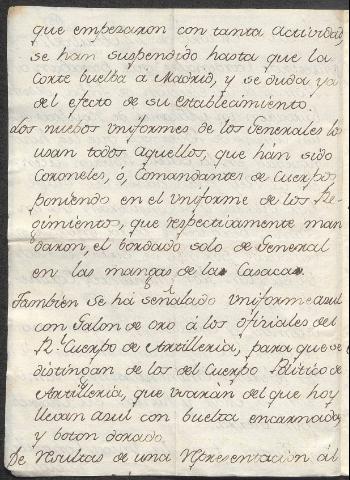 que empezaron con tanta actividad,
se han suspendido hasta que la
Corte buelba á Madrid, y se duda ya
del efecto de su establecimiento.
Los nuebos uniformes de los Generales lo
usan todos aquellos, que hán sido
Coroneles, ó, Comandantes de Cuerpos
poniendo en el uniforme de los Re-
gimientos, que respectivamente man
daron, el bordado solo de General
en las mangas de la Casaca.
Tambien se há señalado uniforme azul
con Galon de oro á los oficiales del
Rl. Cuerpo de Artilleria, para que se
distingan de los del Cuerpo Politico de
Artilleria, que usarán del que hoy
llevan azul con buelta encarnada,
y boton dorado.
De resultas de una representacion ál